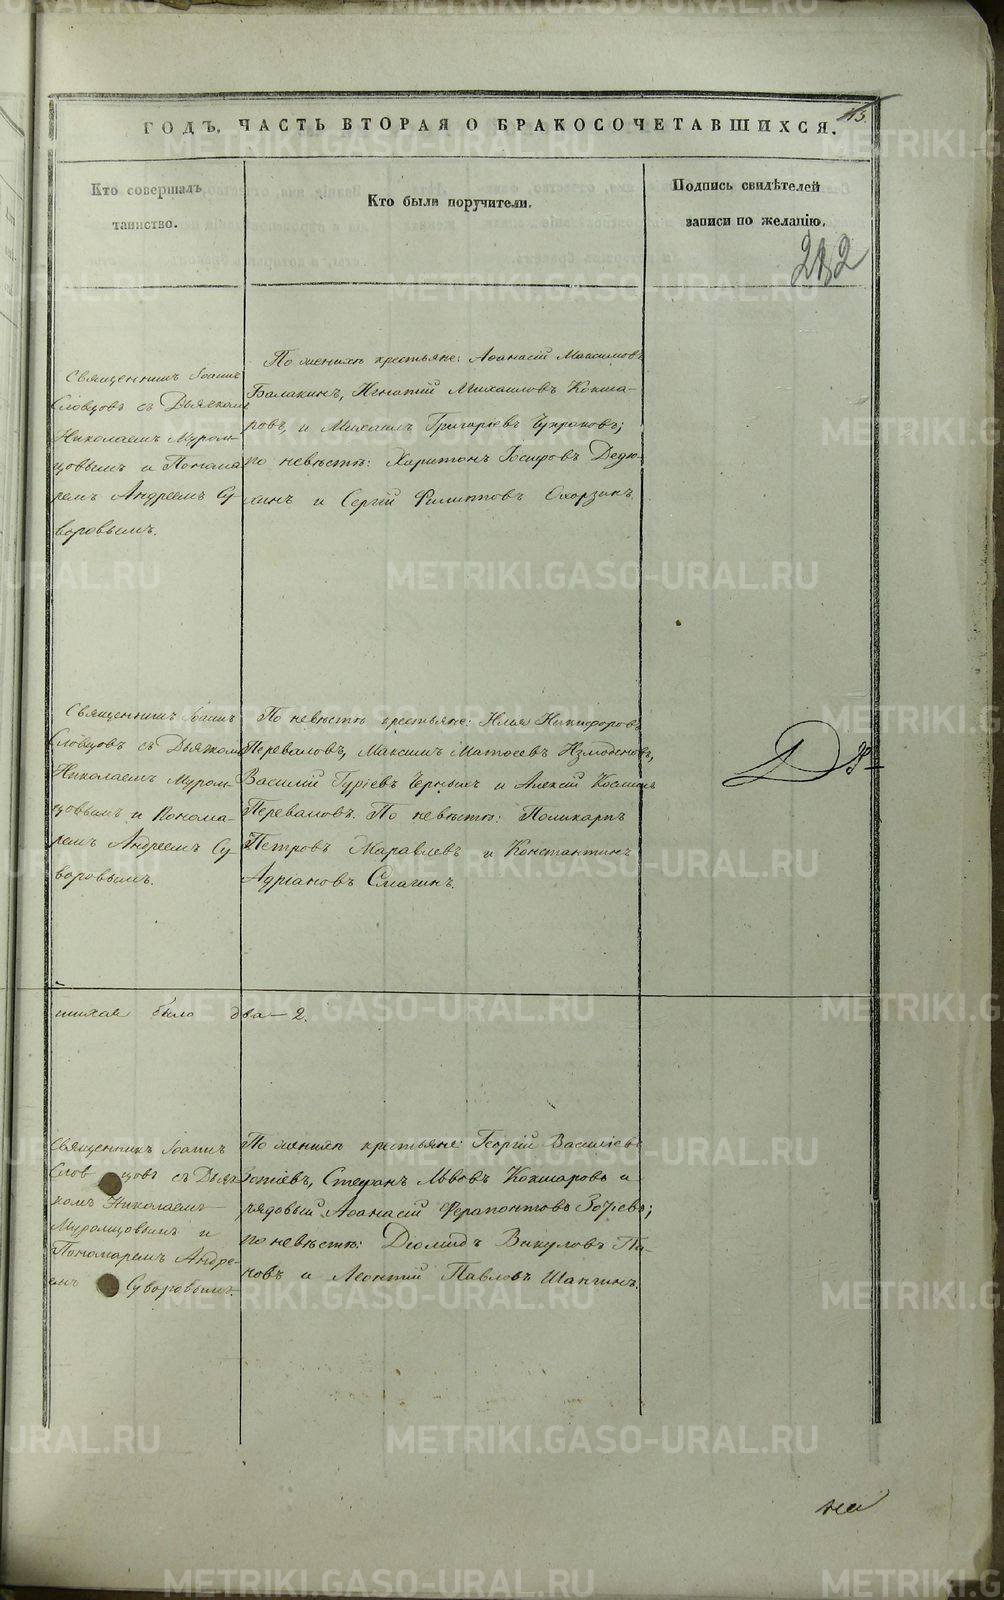 ГОДЪ, ЧАСТЬ ВТОРАЯ О БРАКОСОЧЕТАВШИХСЯ.
Кто совершалъ
таинство.
Кто были поручители.
Подпись свидѣтелей
записи по желанію.
Священникъ Іоаннъ
Словцовъ съ Дьячкомъ
Николаемъ Муром-
цовымъ и Понома-
ремъ Андреемъ Су-
воровымъ.
По женихѣ крестьяне: Аѳанасій Максимовъ
Балакинъ, Игнатій Михаиловъ Кокша-
ровъ, и Михаилъ Григоріевъ
по невѣстѣ: Харитонъ Іосифовъ Дедю-
хинъ и Сергій Филипповъ Охорзинъ.
Священникъ Іоаннъ
Словцовъ съ Дьячкомъ
Николаемъ Муром-
цовымъ и Понома-
ремъ Андреемъ Су-
воровымъ.
По невѣстѣ крестьяне: Илья Никифоровъ
Переваловъ, Максимъ Матѳеевъ Измоденовъ,
Василій Гуріевъ Черныхъ и Алексій Косминъ
Переваловъ. По невѣстѣ: Поликарпъ
Петровъ Маравлевъ и Константинъ
Адріановъ Смагинъ.
шихся было два — 2.
Священникъ Іоаннъ
Словцовъ съ Дьяч-
комъ Николаемъ
Муромцовымъ и
Пономаремъ Андре-
емъ Суворовымъ.
По женихѣ крестьяне: Георгій Василіевъ
Зотіевъ, Стефанъ Львовъ Кокшаровъ и
рядовый Аѳанасій Ферапонтовъ Зотіевъ;
по невѣстѣ: Діомидъ Викуловъ Па-
новъ и Леонтій Павловъ Шангинъ.
METRIKI.GASO-URAL.RU